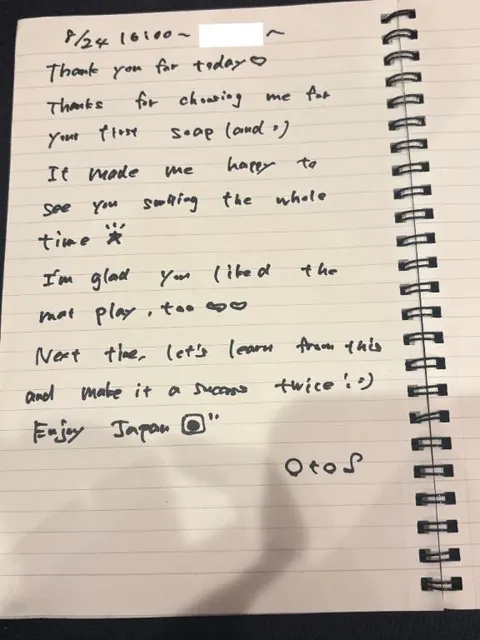 8/24 16:00~ ~
Thank you for today♡
Thanks for choosing me for
your first soap land :)
It made me happy to
see you smiling the whole
time ☆
I'm glad you liked the
mat play, too ♡♡
Next time, let's learn from this
and make it a success twice! :)
Enjoy Japan